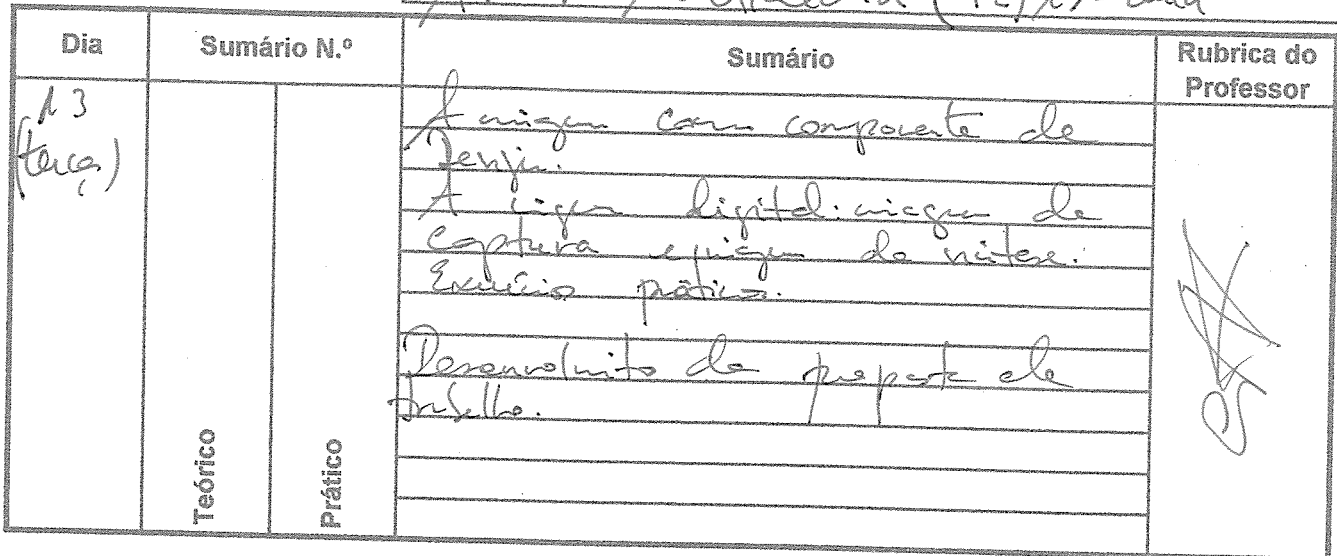 Dia
Sumário N.º
Sumário
Rubrica do
Professor
13
(terça)
Teórico
Prático
A imagem como componente de
Design.
A imagem digital: imagem de
captura e imagem de síntese.
Exercício prático.
Desenvolvimento da proposta de
trabalho.